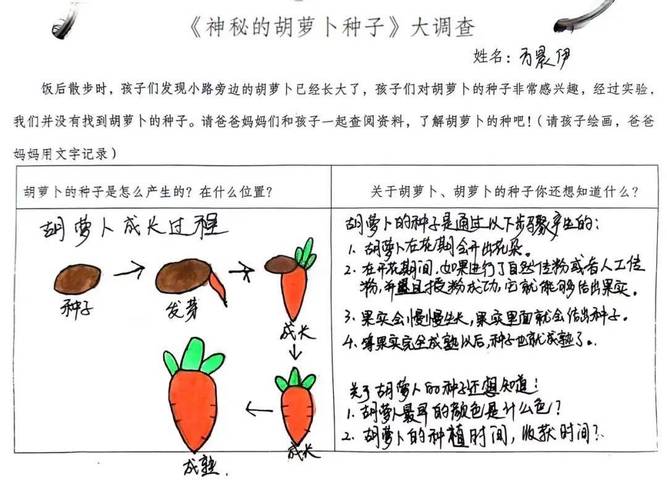 《神秘的胡萝卜种子》大调查
姓名：方晨伊
饭后散步时，孩子们发现小路旁边的胡萝卜已经长大了，孩子们对胡萝卜的种子非常感兴趣，经过实验，
我们并没有找到胡萝卜的种子。请爸爸妈妈们和孩子一起查阅资料，了解胡萝卜的种吧！（请孩子绘画，爸爸
妈妈用文字记录）
胡萝卜的种子是怎么产生的？在什么位置？
胡萝卜成长过程
种子
发芽
成长
成长
成熟.
关于胡萝卜、胡萝卜的种子你还想知道什么？
胡萝卜的种子是通过以下步骤产生的：
1. 胡萝卜在花期会开出花朵。
2. 在开花期间，如果进行了自然传粉或者人工传
粉，并且授粉成功，它就能够结出果实。
3. 果实会慢慢生长，果实里面就会结出种子。
4. 等果实完全成熟以后，种子也就成熟了。
关于胡萝卜的种子还想知道：
1. 胡萝卜最早的颜色是什么色？
2. 胡萝卜的种植时间，收获时间？